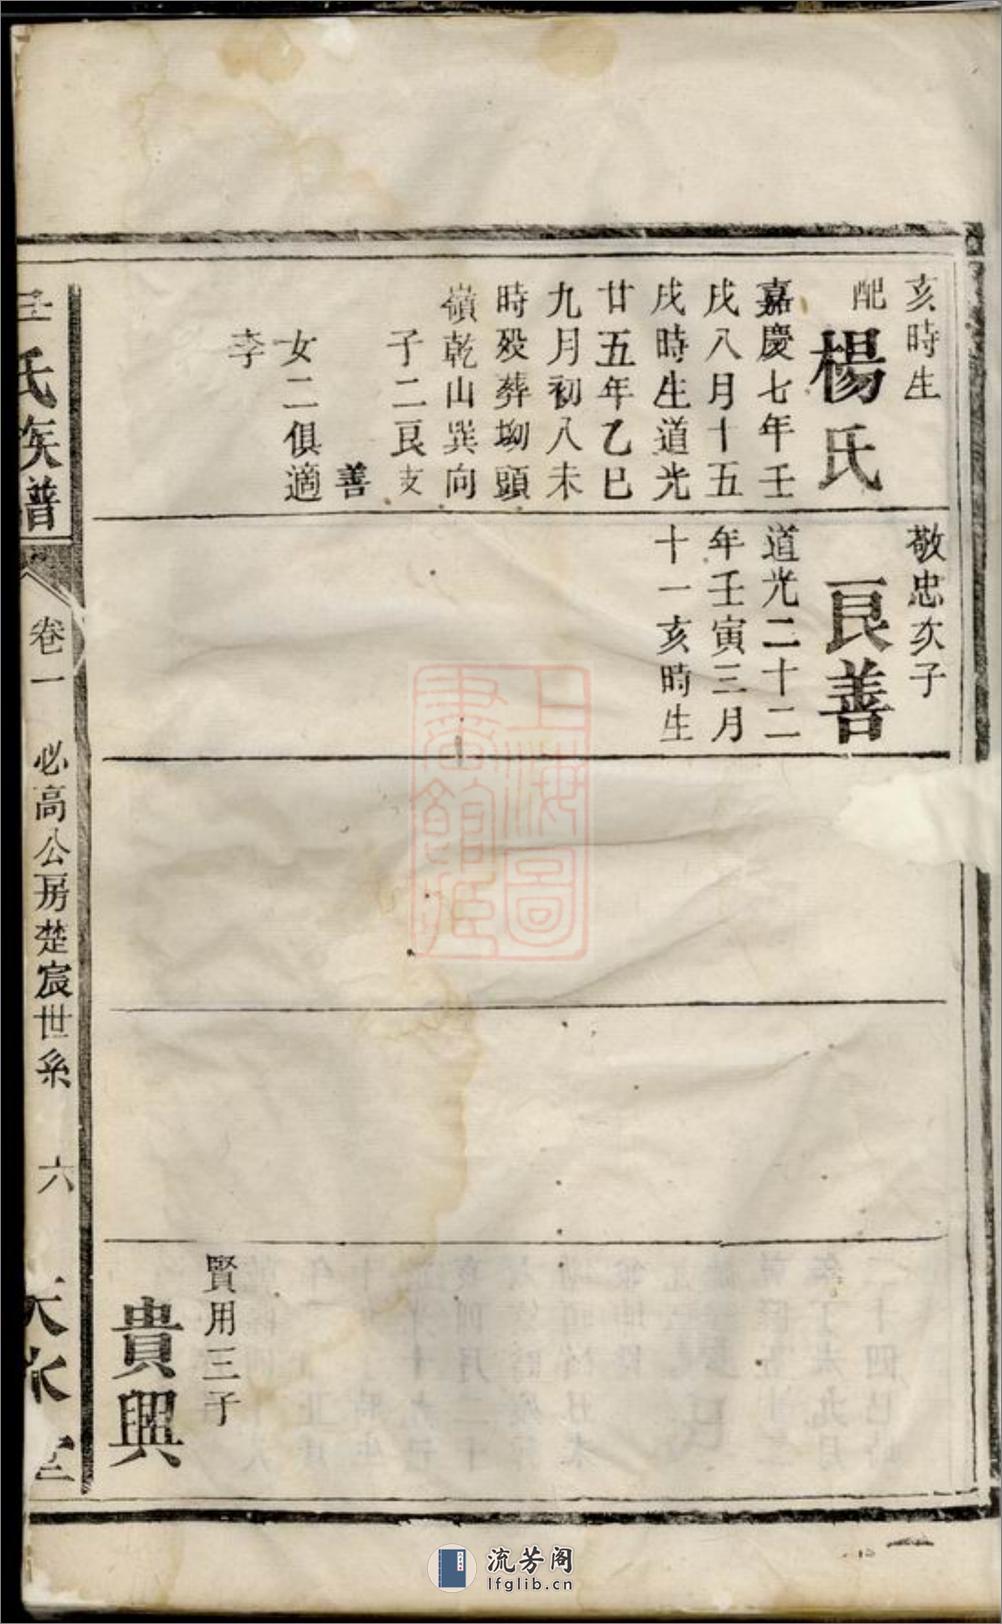 亥時生
配
楊氏
嘉慶七年壬
戌八月十五
戌時生道光
廿五年乙巳
九月初八未
時殁葬坳頭
嶺乾山巽向
子二良支
善
女二俱適
李
敬忠次子
良善
道光二十二
年壬寅三月
十一亥時生
賢用三子
貴興
氏族譜
卷一
必高公房楚宸世系
六
天水堂
上海圖書館藏
流芳阁
lfglib.cn